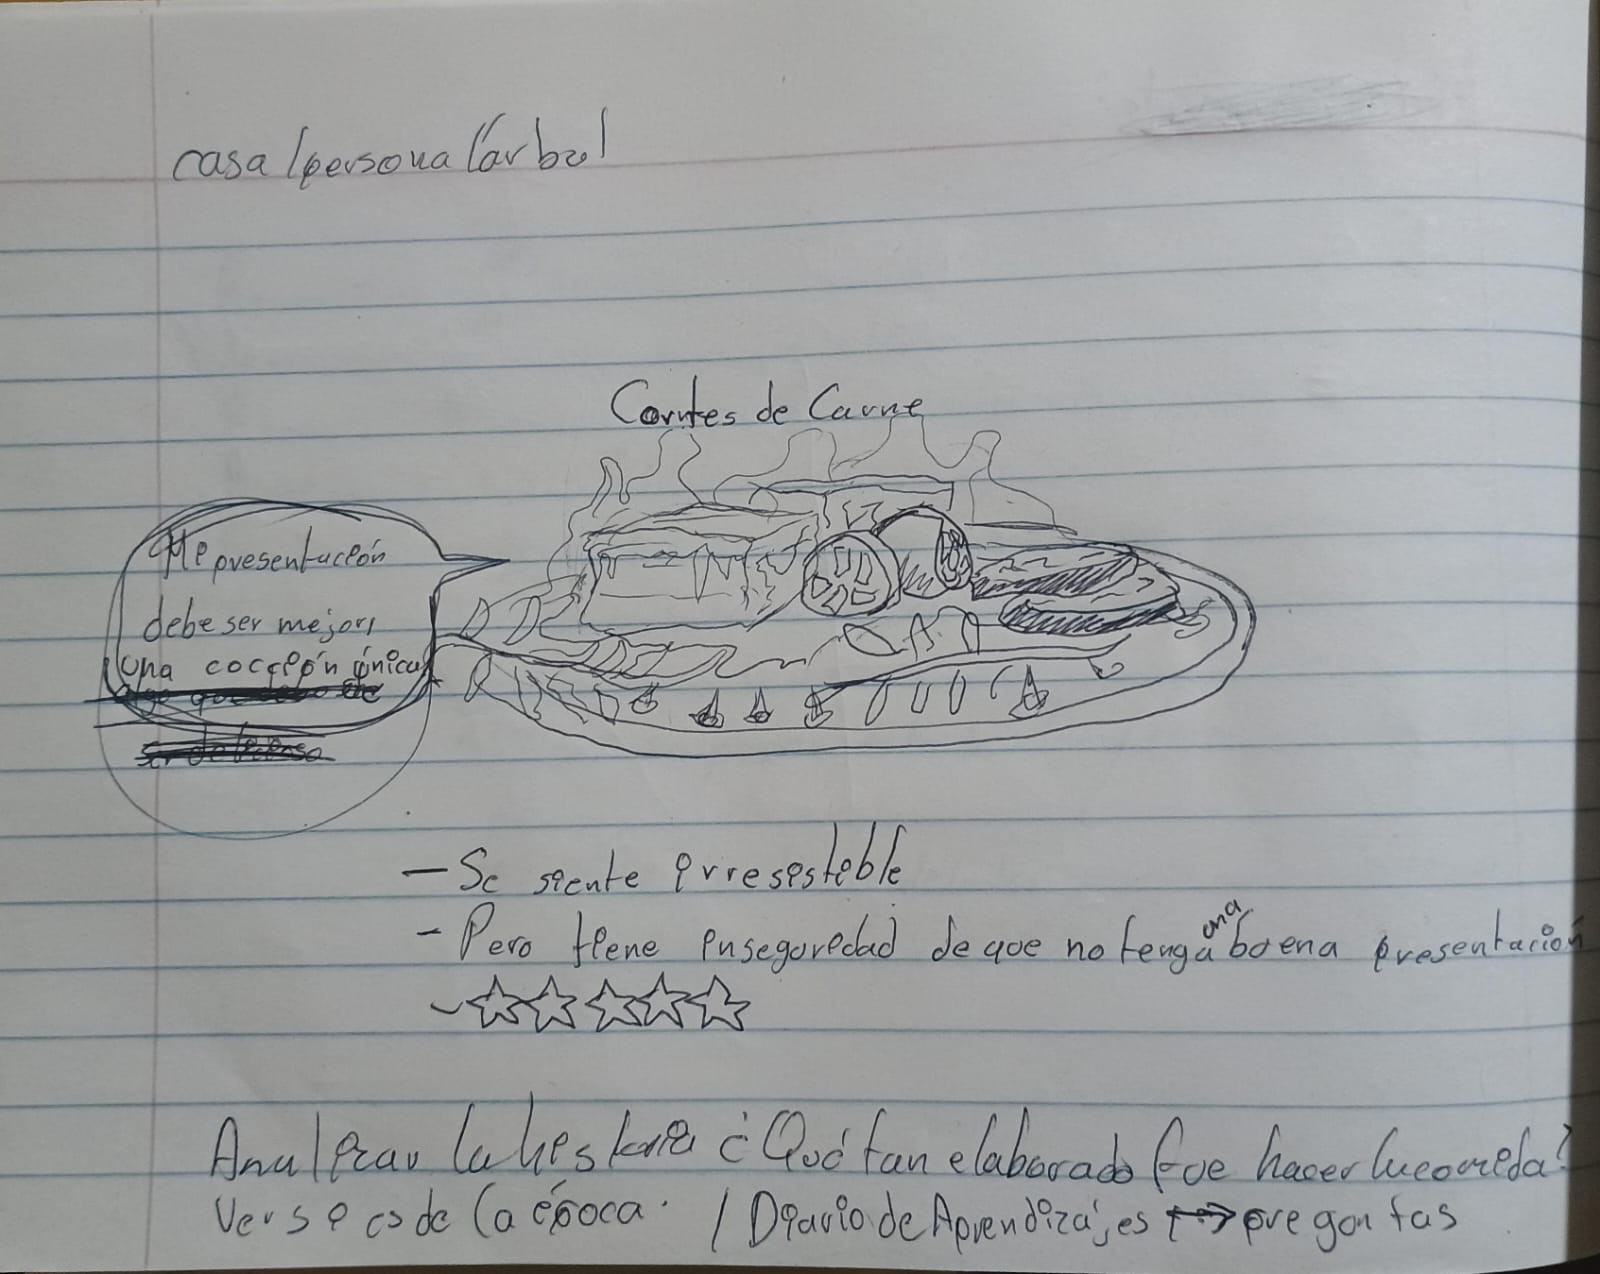 casa/persona/árbol
Cortes de Carne
Mi presentación
debe ser mejor,
una cocción única
- Se siente irresistible
- Pero tiene inseguridad de que no tenga una buena presentación
Analizar la historia ¿Qué tan elaborado fue hacer la comida?
Ver si es de la época. / Diario de Aprendizajes → preguntas